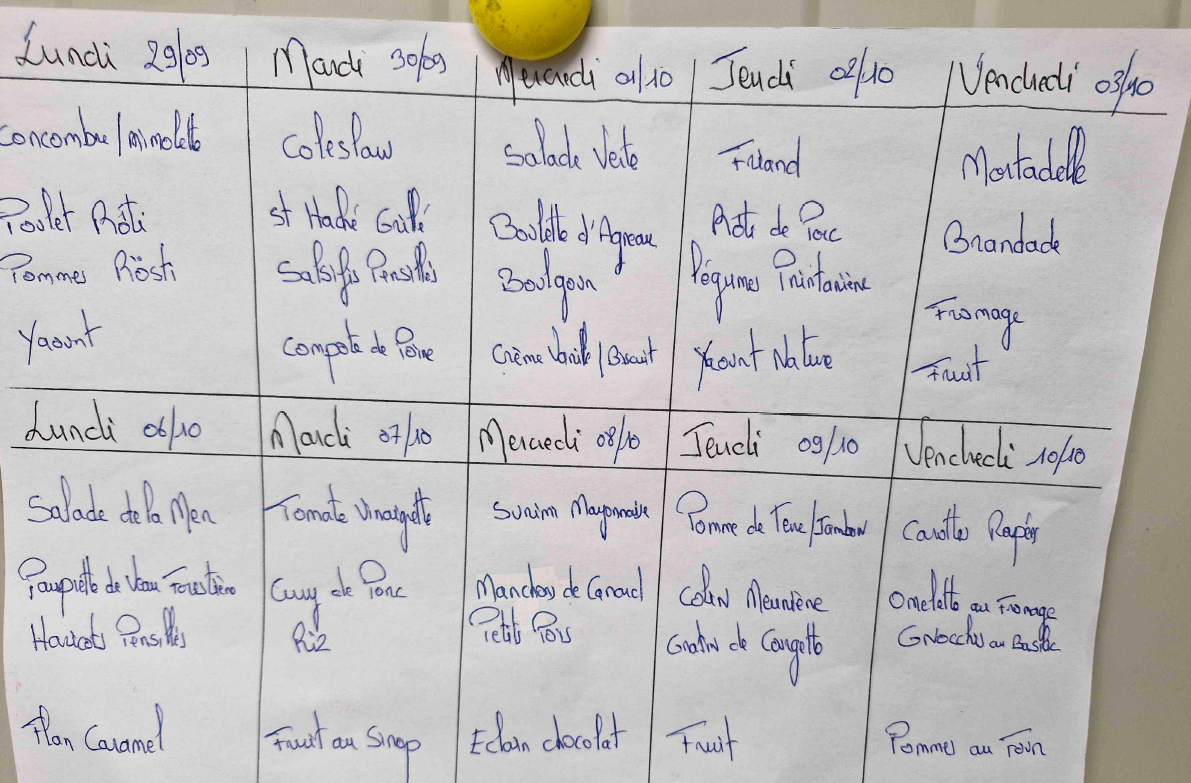 Lundi 29/09
Concombre/Mimolette
Poulet Rôti
Pommes Rösti
Yaourt
Mardi 30/09
Coleslaw
St Haché Grillé
Salsifis Persillés
Compote de Poire
Mercredi 01/10
Salade Verte
Boulette d'Agneau
Boulgour
Crème Vanille/Biscuit
Jeudi 02/10
Friand
Rôti de Porc
Légumes Printanière
Yaourt Nature
Vendredi 03/10
Mortadelle
Brandade
Fromage
Fruit
Lundi 06/10
Salade de la Mer
Paupiette de Veau Forestière
Haricots Persillés
Flan Caramel
Mardi 07/10
Tomate Vinaigrette
Curry de Porc
Riz
Fruit au Sirop
Mercredi 08/10
Surimi Mayonnaise
Manchons de Canard
Petits Pois
Eclair chocolat
Jeudi 09/10
Pomme de Terre/Jambon
Colin Meunière
Gratin de Courgette
Fruit
Vendredi 10/10
Carottes Rapées
Omelette au Fromage
Gnocchis au Basilic
Pommes au Four